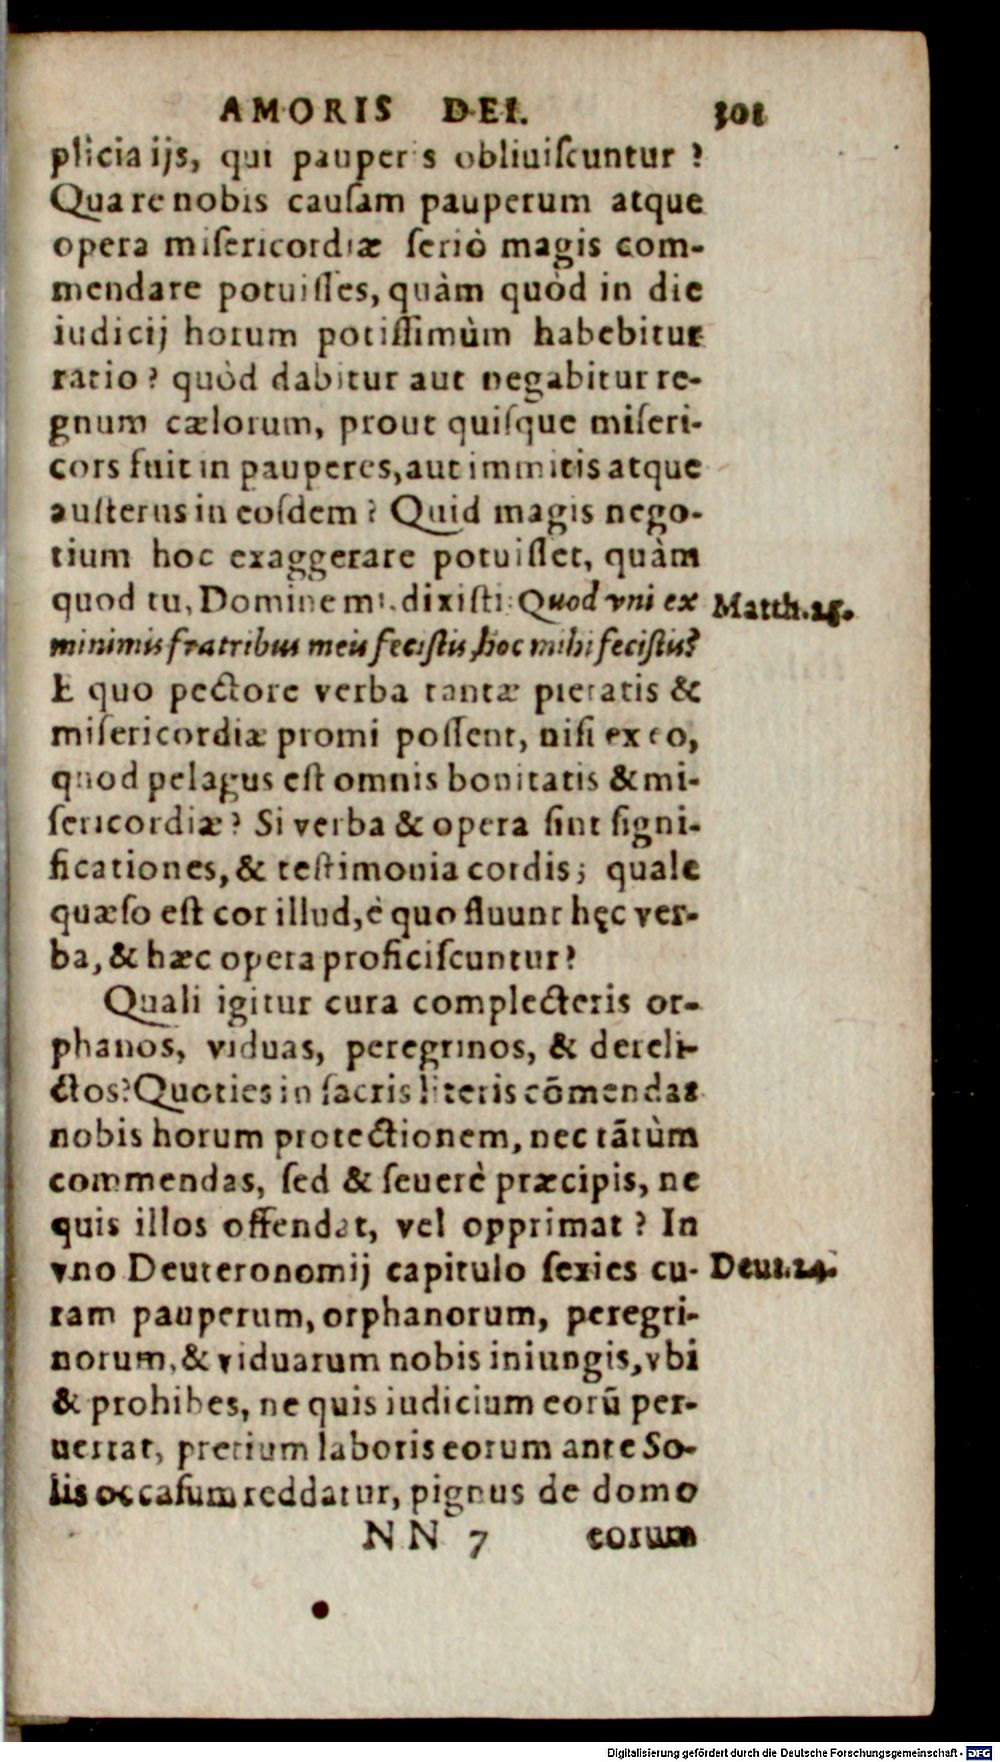 AMORIS DEI. 301
plicia ijs, qui pauperes obliuiſcuntur ?
Quare nobis cauſam pauperum atque
opera miſericordiæ ſeriò magis com-
mendare potuiſſes, quàm quòd in die
iudicij horum potiſſimùm habebitur
ratio ? quòd dabitur aut negabitur re-
gnum cælorum, prout quiſque miſeri-
cors fuit in pauperes, aut immitis atque
auſterus in eoſdem ? Quid magis nego-
tium hoc exaggerare potuiſſet, quàm
quod tu, Domine mi, dixiſti: Quod vni ex
Matth.25.
minimis fratribus meis feciſtis, hoc mihi feciſtis?
E quo pectore verba tantæ pietatis &
miſericordiæ promi poſſent, niſi ex eo,
quod pelagus eſt omnis bonitatis & mi-
ſericordiæ ? Si verba & opera ſint ſigni-
ficationes, & teſtimonia cordis; quale
quæſo eſt cor illud, è quo fluunt hęc ver-
ba, & hæc opera proficiſcuntur?
Quali igitur cura complecteris or-
phanos, viduas, peregrinos, & dereli-
ctos? Quoties in ſacris literis cõmendas
nobis horum protectionem, nec tãtùm
commendas, ſed & ſeuerè præcipis, ne
quis illos offendat, vel opprimat ? In
vno Deuteronomij capitulo ſexies cu-
Deut.24.
ram pauperum, orphanorum, peregri-
norum, & viduarum nobis iniungis, vbi
& prohibes, ne quis iudicium eorũ per-
uertat, pretium laboris eorum ante So-
lis occaſum reddatur, pignus de domo
NN 7 eorum
Digitalisierung gefördert durch die Deutsche Forschungsgemeinschaft - DFG